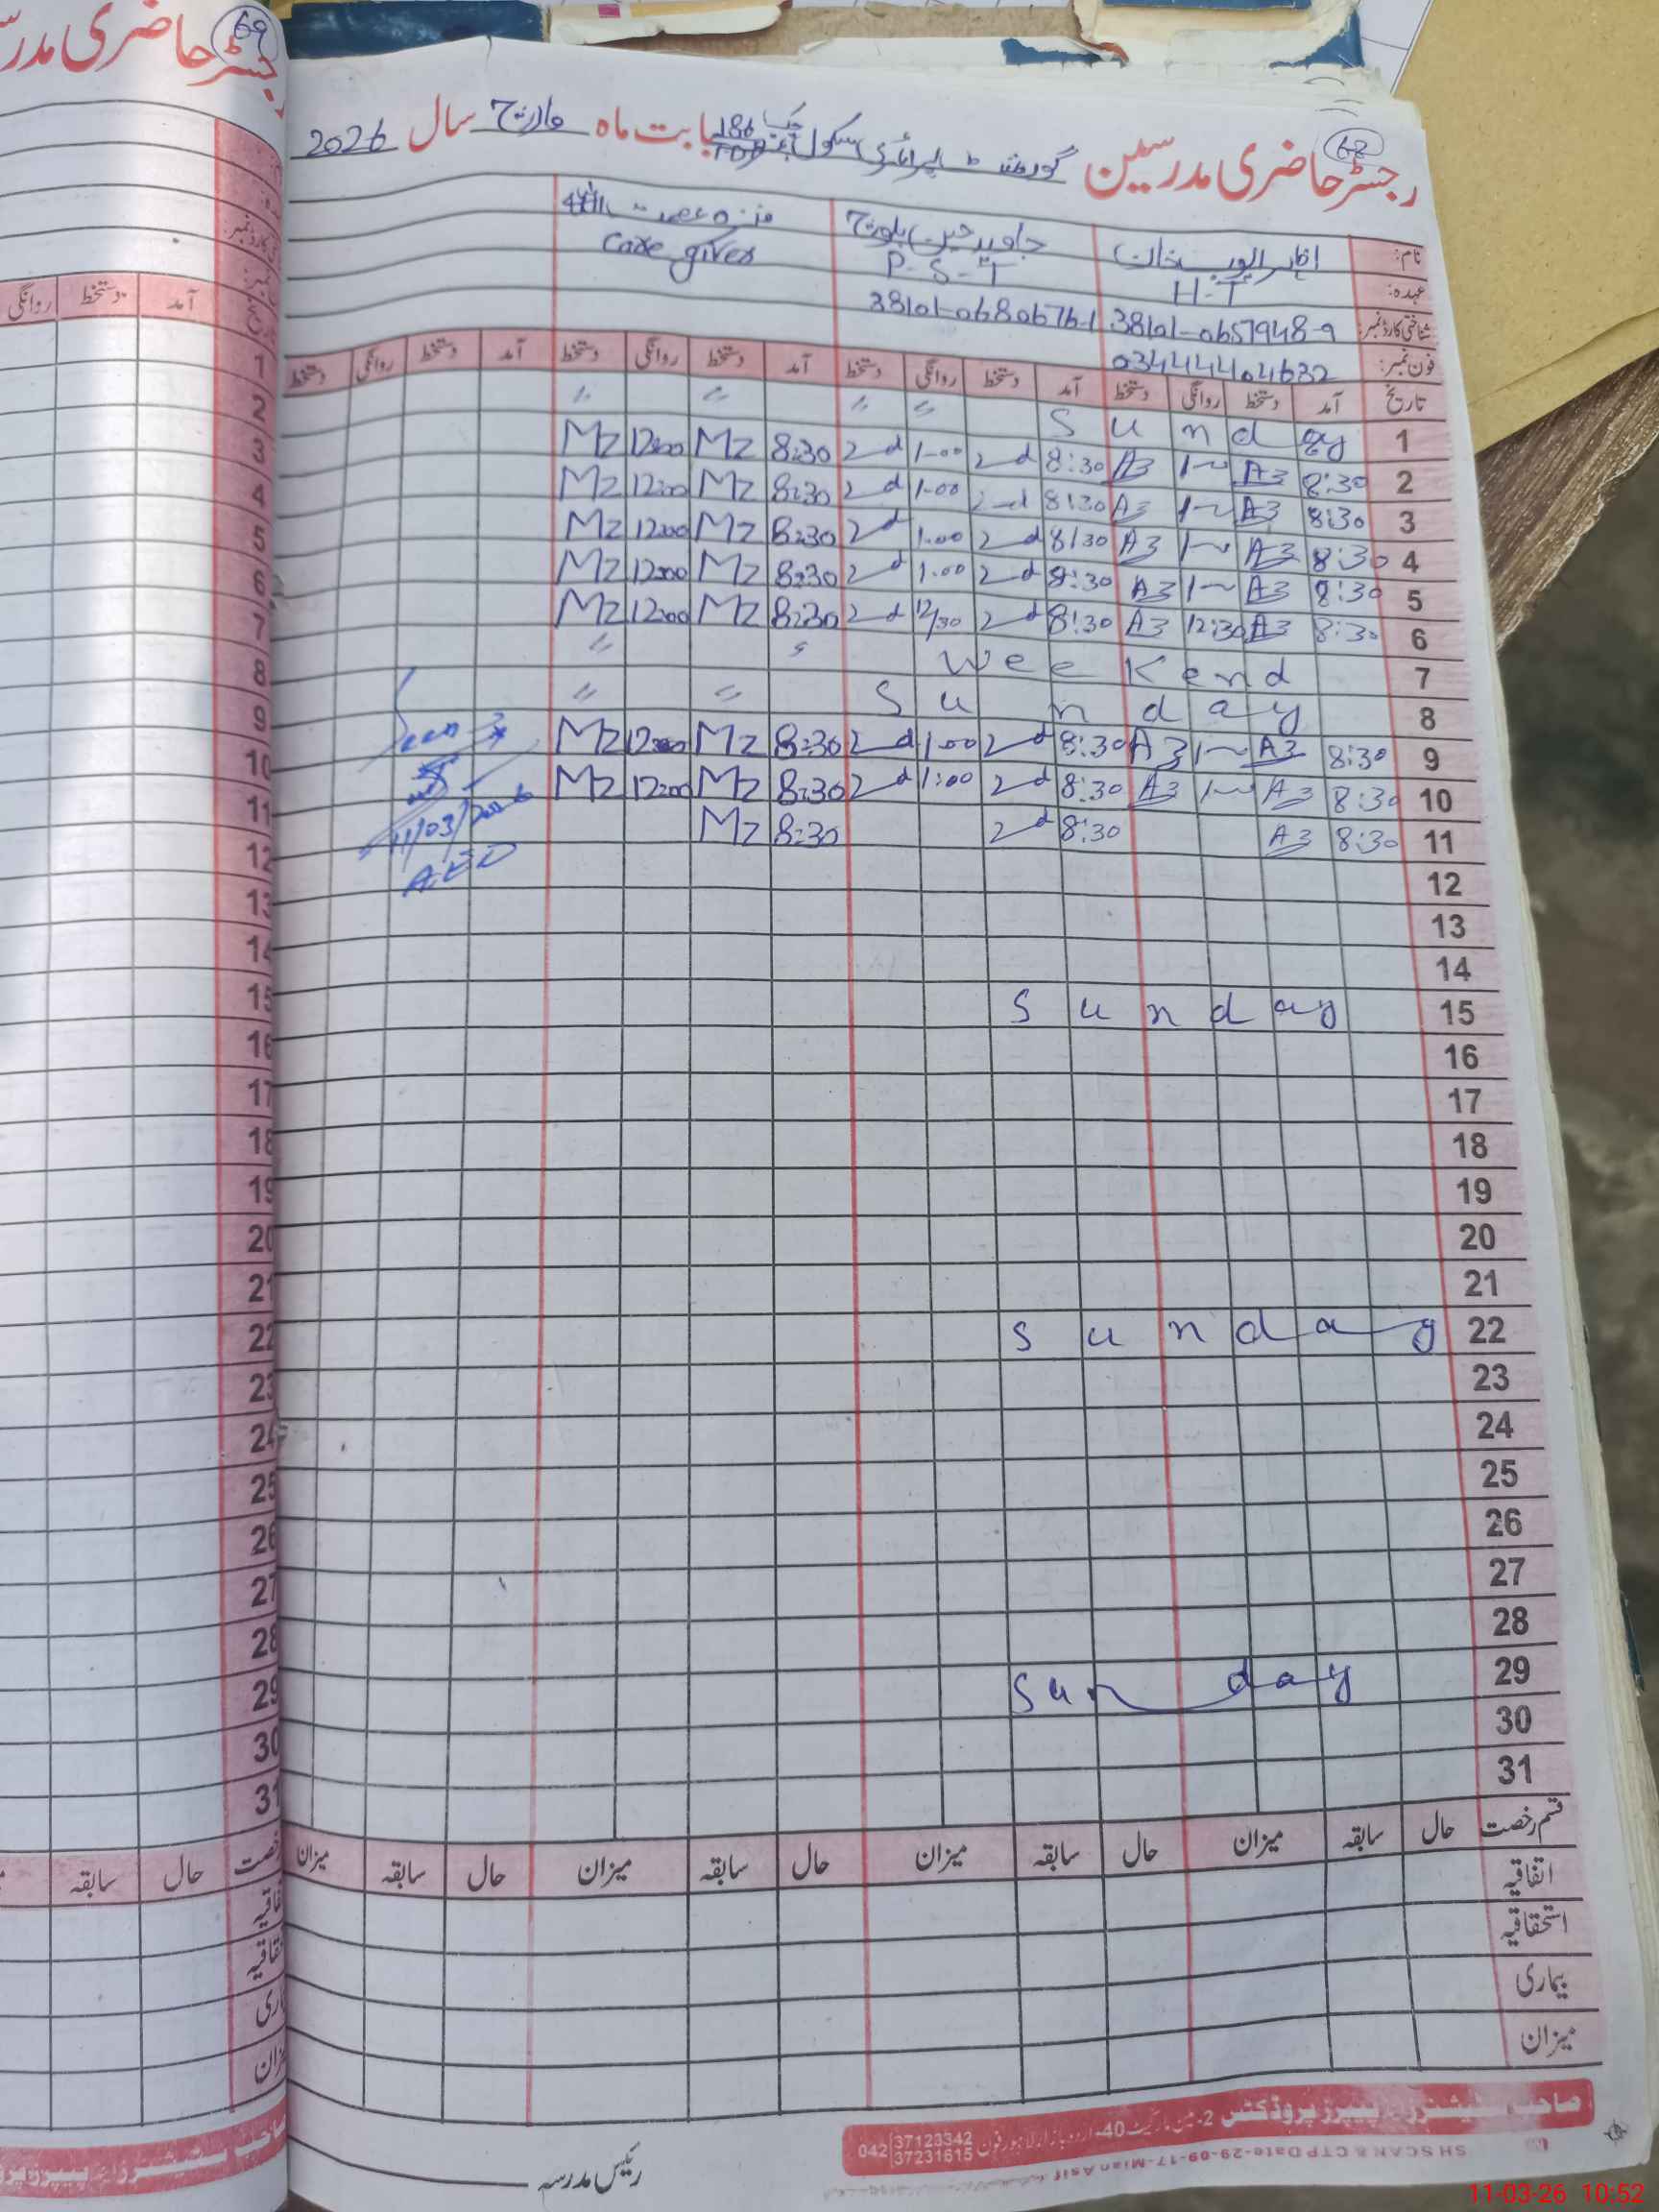 رجسٹر حاضری مدرسین گورنمنٹ پرائمری سکول چک 186 بابت ماہ مارچ سال 2026
68
69
رجسٹر حاضری مدر
نام:
عہدہ: H-T P-S-T Care giver
شناختی کارڈ نمبر: 38101-0657948-9 38101-0680676-1
فون نمبر: 03444404632
تاریخ آمد دستخط روانگی دستخط آمد دستخط روانگی دستخط آمد دستخط روانگی دستخط آمد دستخط روانگی دستخط
1 Sunday 〃 〃 〃 〃
2 8:30 A3 1~ A3 8:30 2d 1-00 2d 8:30 Mz 12:00 Mz
3 8:30 A3 1~ A3 8:30 2d 1-00 2d 8:30 Mz 12:00 Mz
4 8:30 A3 1~ A3 8:30 2d 1.00 2d 8:30 Mz 12:00 Mz
5 8:30 A3 1~ A3 8:30 2d 1.00 2d 8:30 Mz 12:00 Mz
6 8:30 A3 12:30 A3 8:30 2d 12/30 2d 8:30 Mz 12:00 Mz
7 Weekend 〃
8 Sunday 〃 〃
9 8:30 A3 1~ A3 8:30 2d 1.00 2d 8:30 Mz 12:00 Mz
10 8:30 A3 1~ A3 8:30 2d 1:00 2d 8:30 Mz 12:00 Mz
11 8:30 A3 8:30 2d 8:30 Mz
11/03/2026
AEO
12
13
14
15 Sunday
16
17
18
19
20
21
22 Sunday
23
24
25
26
27
28
29 Sunday
30
31
قسم رخصت حال سابقہ میزان حال سابقہ میزان حال سابقہ میزان حال سابقہ میزان
اتفاقیہ
استحقاقیہ
بیماری
میزان
رئیس مدرسہ
صاحب سٹیشنرز اینڈ پیپرز پروڈکٹس 2-مین مارکیٹ 40-اردو بازار لاہور فون 042 37123342 37231615
SH SCAN & CTP Date-29-09-17-Mian Asif
آمد دستخط روانگی
1
2
3
4
5
6
7
8
9
10
11
12
13
14
15
16
17
18
19
20
21
22
23
24
25
26
27
28
29
30
31
حال سابقہ
11-03-26 10:52